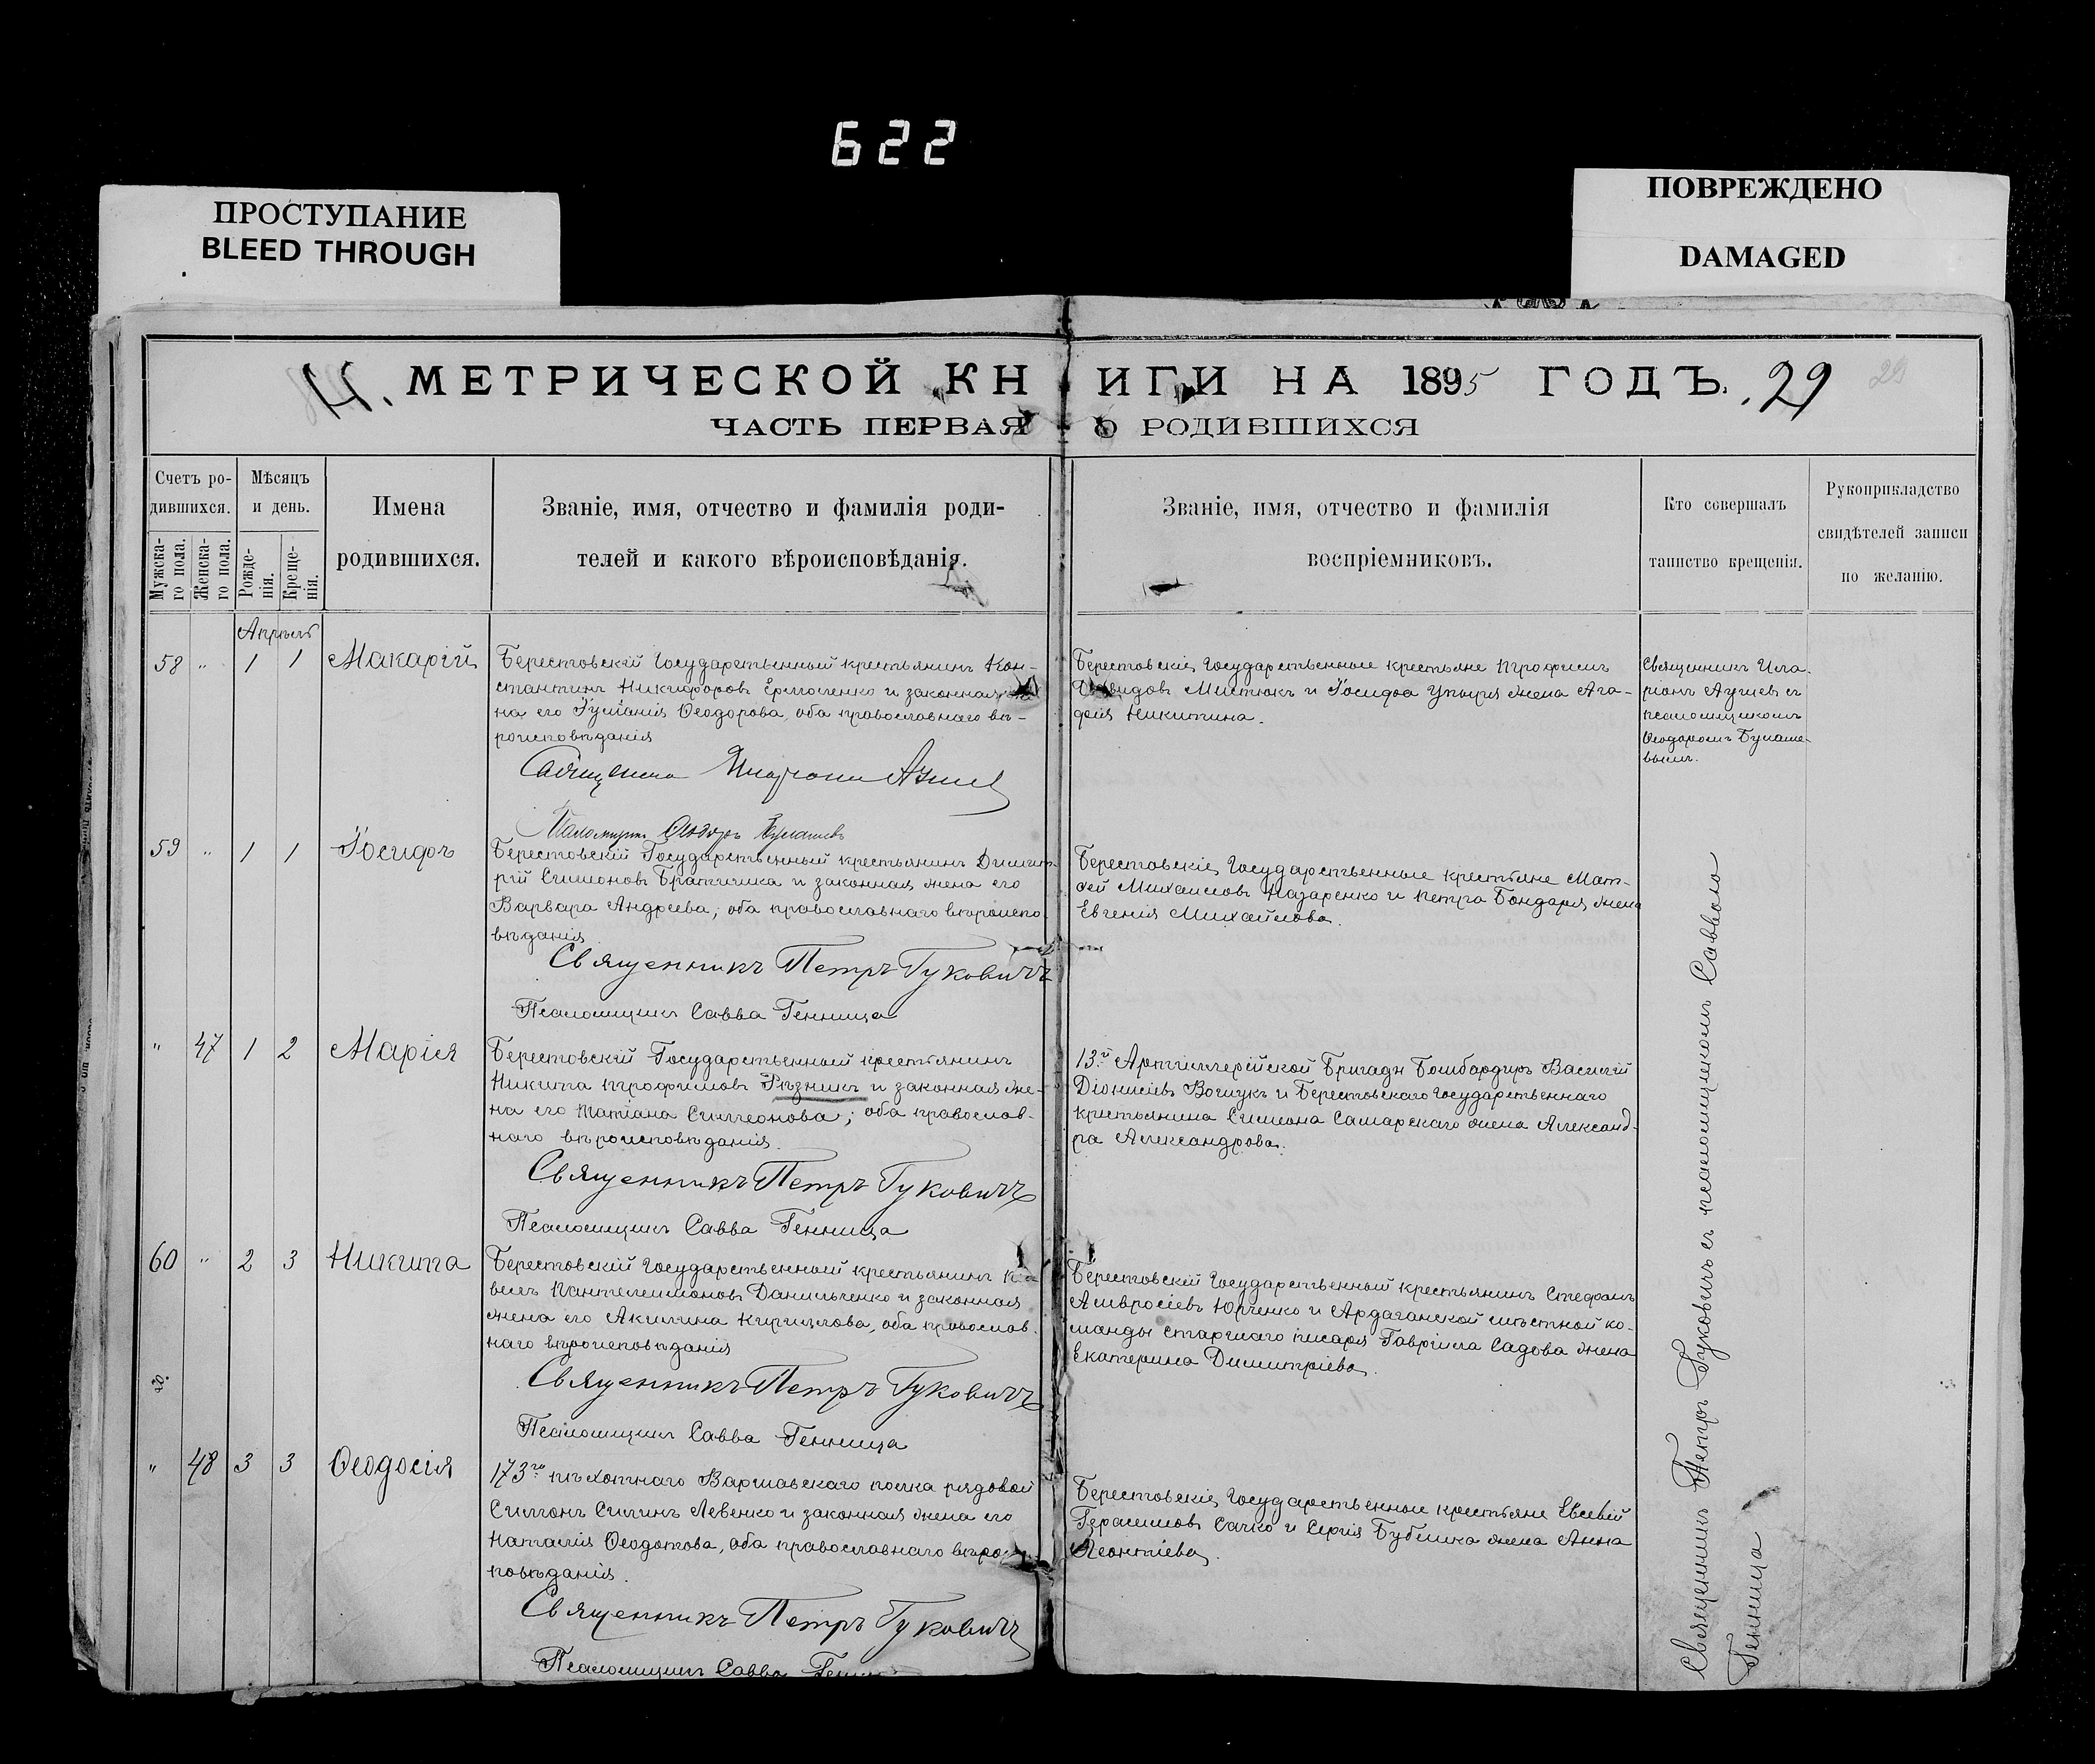 622
ПРОСТУПАНИЕ
BLEED THROUGH
ПОВРЕЖДЕНО
DAMAGED
МЕТРИЧЕСКОЙ КНИГИ НА 1895 ГОДЪ. 29
ЧАСТЬ ПЕРВАЯ О РОДИВШИХСЯ
Счетъ ро-
дившихся.
Мужска-
го пола.
Женска-
го пола.
Мѣсяцъ
и день.
Рожде-
нія.
Креще-
нія.
Имена
родившихся.
Званіе, имя, отчество и фамилія роди-
телей и какого вѣроисповѣданія.
Званіе, имя, отчество и фамилія
воспріемниковъ.
Кто совершалъ
таинство крещенія.
Рукоприкладство
свидѣтелей записи
по желанію.
Апрѣль
58 " 1 1 Макарій
Берестовскій Государственный крестьянинъ Кон-
стантинъ Никифоровъ Ермоленко и законная
на его Іуліанія Ѳеодорова, оба православнаго вѣ-
роисповѣданія
Берестовскіе Государственные крестьяне Трофимъ
Мистюкъ и Іосифа Упыря жена Ага-
фія Никитина.
Священникъ Ила-
ріонъ съ
псаломщикомъ
Ѳеодоромъ
Псаломщикъ Ѳеодоръ
59 " 1 1 Іосифъ
Берестовскій Государственный крестьянинъ Димит-
рій Симоновъ Братишка и законная жена его
Варвара Андреева, оба православнаго вѣроиспо-
вѣданія
Священникъ Петръ Гуковичъ
Псаломщикъ Савва Генница
Берестовскіе Государственные крестьяне Мат-
ѳей Михаиловъ Назаренко и Петра Бондаря жена
Евгенія Михайлова.
" 47 1 2 Марія
Берестовскій Государственный крестьянинъ
Никита Трофимовъ Рѣзникъ и законная же-
на его Татіана Симеонова; оба православ-
наго вѣроисповѣданія.
Священникъ Петръ Гуковичъ
Псаломщикъ Савва Генница
13й Артиллерійской Бригады Бомбардиръ Василій
Діонисіевъ Вощукъ и Берестовскаго Государственнаго
крестьянина Симеона Самарскаго жена Александ-
ра Александрова.
60 " 2 3 Никита
Берестовскій Государственный крестьянинъ Па-
велъ Пантелеимоновъ Данильченко и законная
жена его Акилина Кириллова, оба православ-
наго вѣроисповѣданія
Священникъ Петръ Гуковичъ
Псаломщикъ Савва Генница
Берестовскій Государственный крестьянинъ Стефанъ
Амвросіевъ Юрченко и Ардаганской мѣстной ко-
манды старшаго писаря Гавріила Садова жена
Екатерина Димитріева.
" 48 3 3 Ѳеодосія
173го пѣхотнаго Варшавскаго полка рядовой
Симонъ Силинъ Левенко и законная жена его
Наталія Ѳеодотова, оба православнаго вѣроис-
повѣданія.
Священникъ Петръ Гуковичъ
Псаломщикъ Савва
Берестовскіе Государственные крестьяне Евсевій
Герасимовъ Сачко и Сергія Бублика жена Анна
Леонтіева.
Священникъ Петръ Гуковичъ съ псаломщикомъ Саввою
Генница